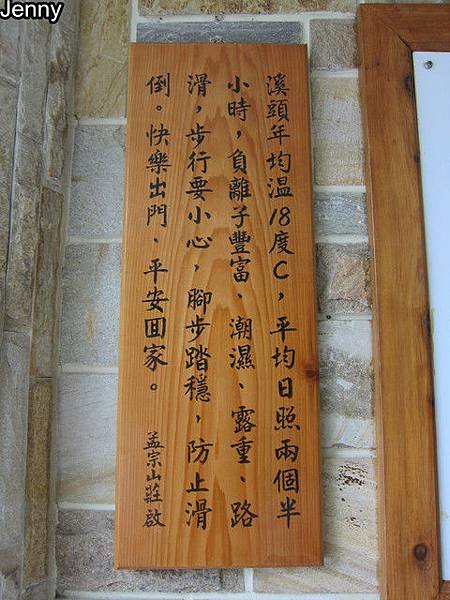 Jenny
溪頭年均溫18度C，平均日照兩個半
小時，負離子豐富、潮濕、露重、路
滑，步行要小心，腳步踏穩，防止滑
倒。快樂出門、平安囬家。
孟宗山莊啟